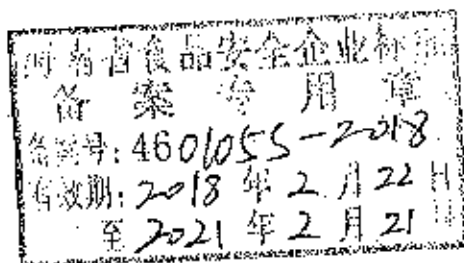 海南省食品安全企业标准
备案专用章
备案号:4601055-2018
有效期:2018年2月22日
至2021年2月21日